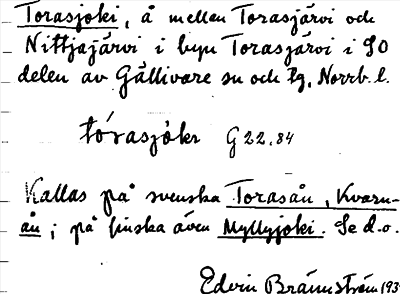 Torasjoki, å mellan Torasjärvi och
Nittjajärvi i byn Torasjärvi i SO
delen av Gällivare sn och tg, Norrb. l.
tórasjokı G 22.84
Kallas på svenska Torasån, Kvarn-
ån; på finska även Myllyjoki. Se d.o.
Edvin Brännström 193